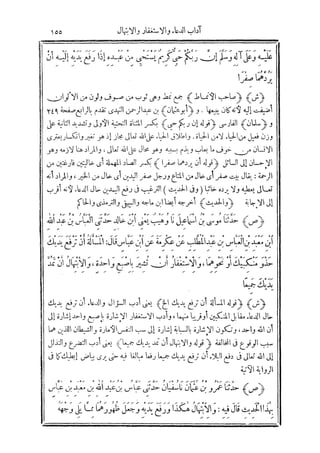 آداب الدعاء والاستغفار والابتهال ١٥٥
عليه وعلى آله وسلم إن ربكم حي كريم يستحي من عبده إذا رفع يديه إليه أن
يردهما صفرا
(ش) (صاحب الأنماط) جمع نمط وهي ثوب من صوف ولون من الألوان
أضيفت إليه لأنه كان يبيعها. و (أبو عثمان) بن عبد الرحمن النهدي تقدم بالرابع صفحة ٢٤٩
و (سلمان) الفارسي (قوله إن ربكم حي) بكسر المثناة التحتية الأولى وتشديد الثانية على
وزن فعيل من الحياء، لا من الحياة، وإطلاق الحياء على الله تعالى مجاز إذ هو تغير وانكسار يعترى
الإنسان من خوف ما يعاب ويذم بسببه وهو محال على الله تعالى، والمراد هنا لازمه وهو
الإحسان إلى السائل (قوله أن يردهما صفرا) بكسر الصاد المهملة أى خاليتين فارغتين من
الرحمة: يقال بيت صفر أى خال من المتاع ورجل صفر اليدين أى خال من الخير، والمراد أنه
تعالى يعطيه ولا يرده خائبا (وفى الحديث) الترغيب فى رفع اليدين حال الدعاء، لأنه أقرب
إلى الإجابة (والحديث) أخرجه أيضا ابن ماجه والبيهقى والترمذى والحاكم
(ص) حدثنا موسى بن إسماعيل نا وهيب يعنى ابن خالد حدثنى العباس بن عبد الله
ابن معبد بن العباس بن عبد المطلب عن عكرمة عن ابن عباس قال: المسألة أن ترفع يديك
حذو منكبيك أو نحوهما، والاستغفار أن تشير بإصبع واحدة، والابتهال أن تمد
يديك جميعا
(ش) (قوله المسألة أن ترفع يديك الخ) يعنى أدب السؤال والدعاء، أن ترفع يديك
حال الدعاء مقابل المنكبين أو قريبا منهما، وأدب الاستغفار الإشارة بإصبع واحد إشارة إلى
أن الله واحد، وتكون الإشارة بالسبابة إشارة إلى سب النفس الأمارة والشيطان اللذين هما
سبب الوقوع فى المخالفة (قوله والابتهال أن تمد يديك جميعا) يعنى أدب التضرع والتذلل
إلى الله تعالى فى دفع البلاء، أن ترفع يديك جميعا رفعا مبالغا فيه حتى يرى بياض إبطيك كما فى
الرواية الآتية
(ص) حدثنا عمرو بن عثمان نا سفيان حدثنى عباس بن عبد الله بن معبد بن عباس
بهذا الحديث قال فيه: والابتهال هكذا ورفع يديه وجعل ظهورهما مما يلى وجهه